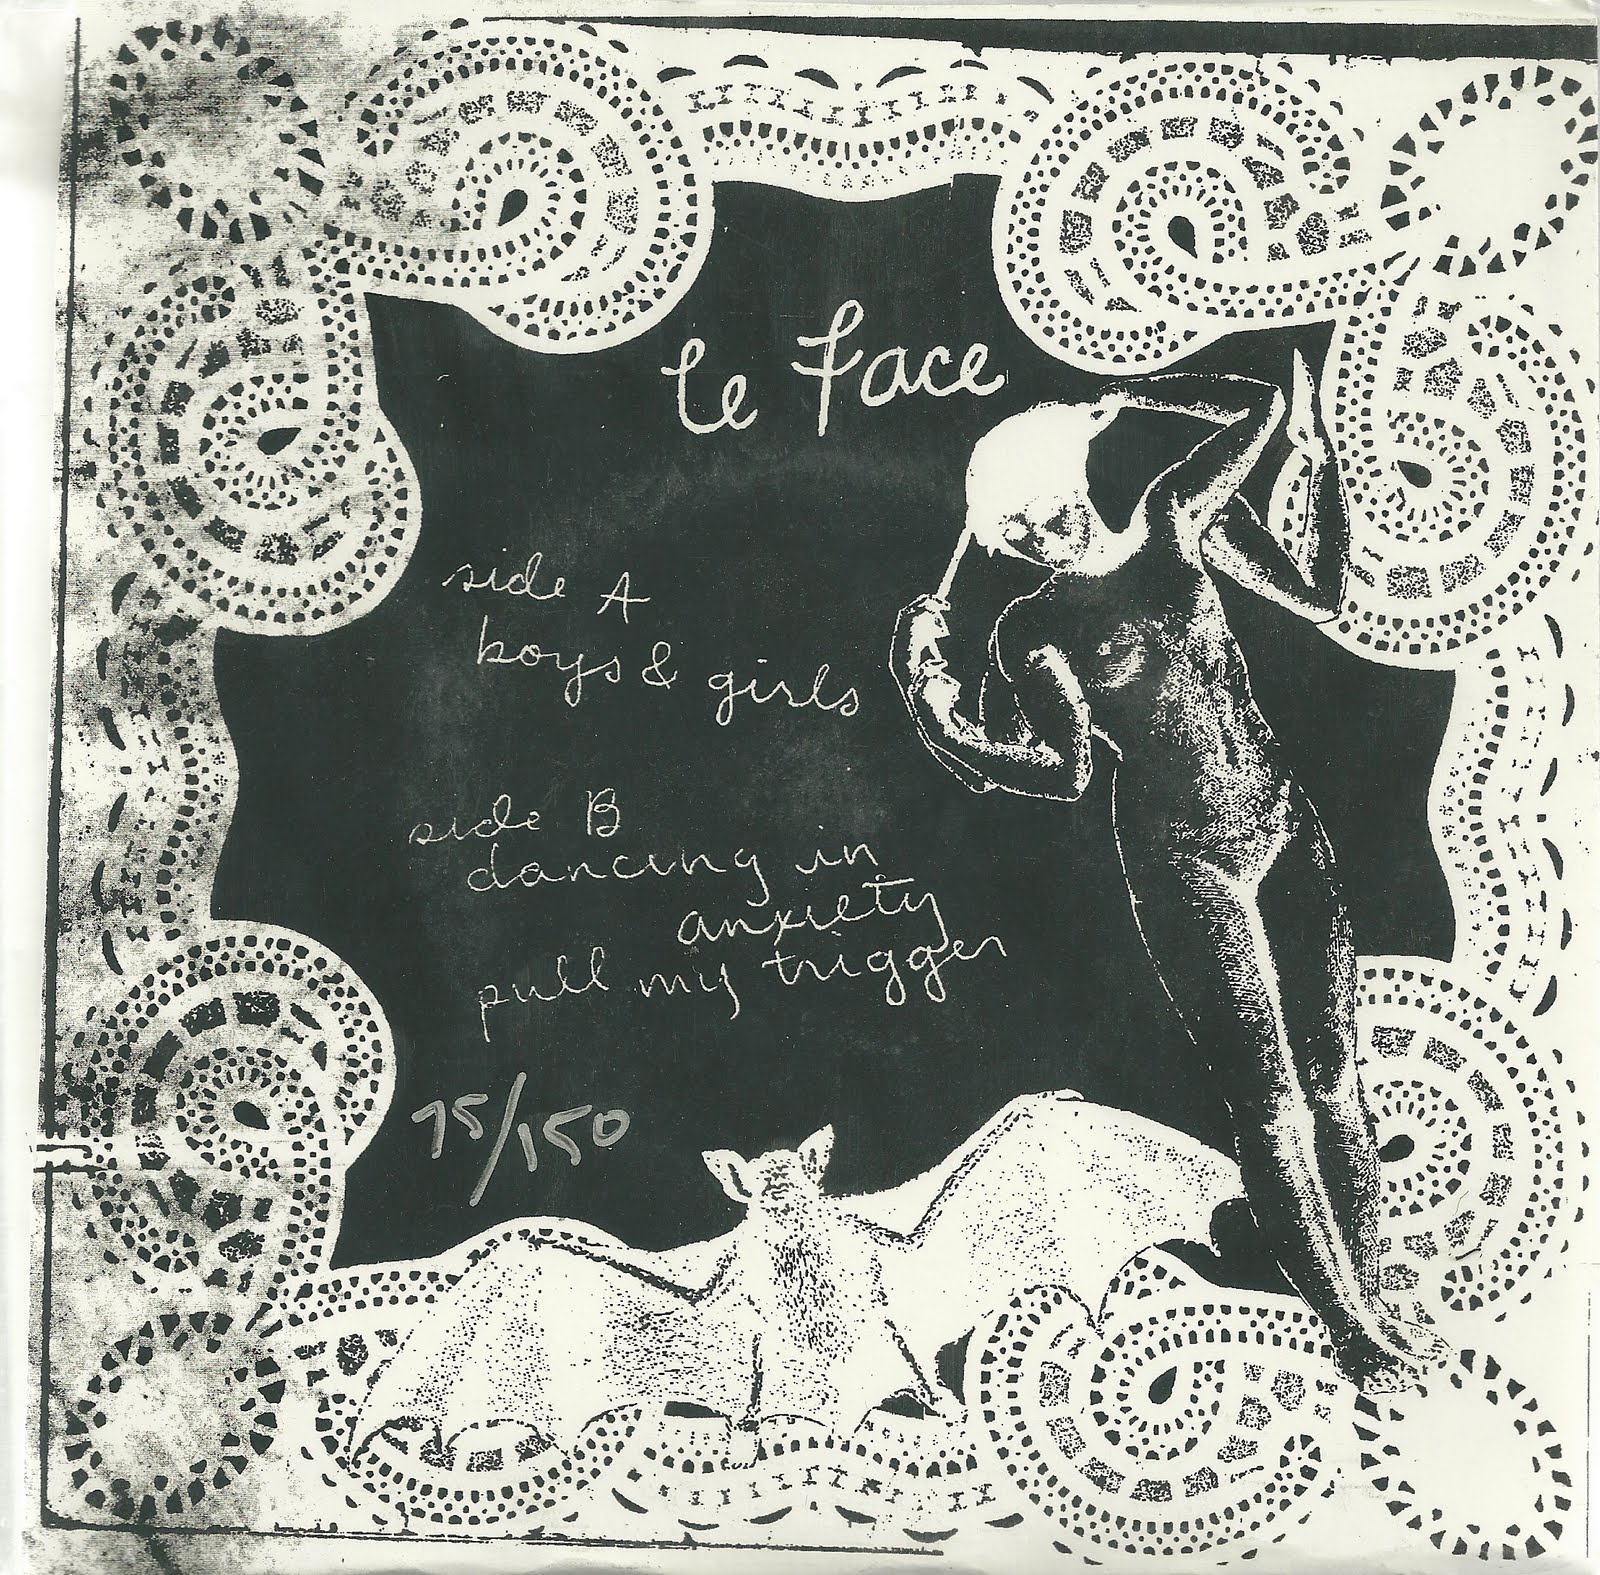 le face
side A
boys & girls
side B
dancing in
anxiety
pull my trigger
75/150